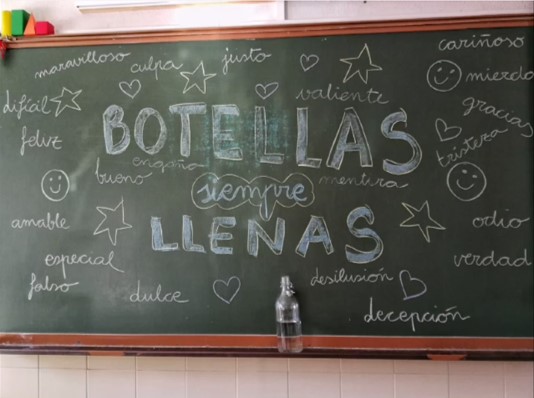 maravilloso culpa justo cariñoso
difícil valiente mierdo
gracias
BOTELLAS
feliz tristera
engaño
bueno siempre mentira
amable LLENAS odio
especial verdad
falso dulce desilusión
decepción